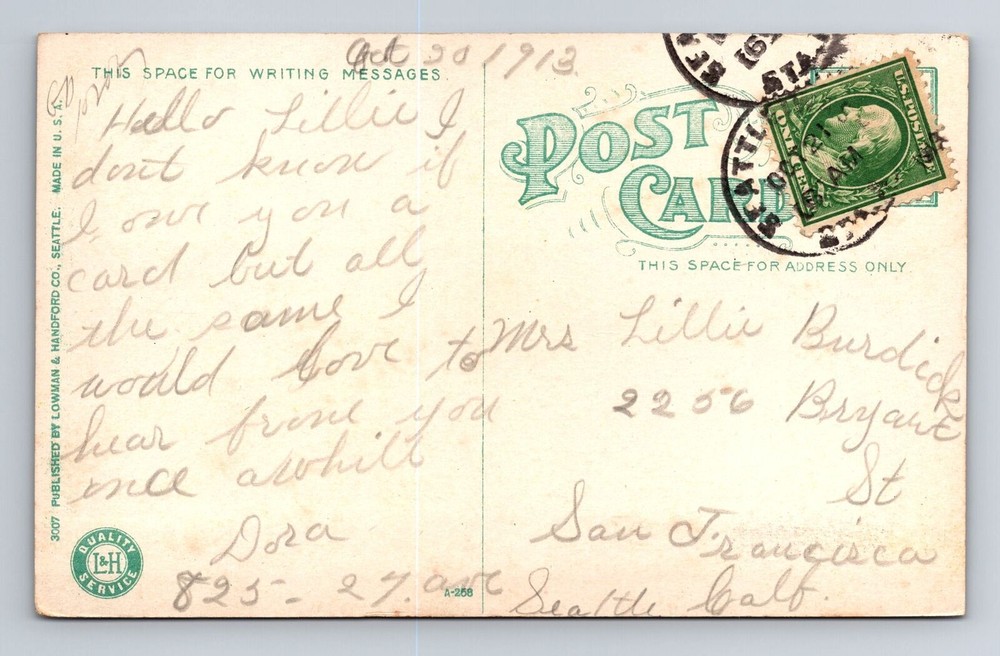 Oct 20 1913.
THIS SPACE FOR WRITING MESSAGES.
Hello Lillie I
dont know if
I owe you a
card but all
the same I
would love to
hear from you
once awhile
Dora
825 - 27. ave
Seattle
POST
CARD
THIS SPACE FOR ADDRESS ONLY
Mrs Lillie Burdick
2256 Bryant
St
San Francisco
Calf.
SEATTLE
OCT 21
AM
STA
U.S. POSTAGE
ONE CENT
3007 PUBLISHED BY LOWMAN & HANDFORD CO., SEATTLE. MADE IN U.S.A.
QUALITY
L&H
SERVICE
A-268